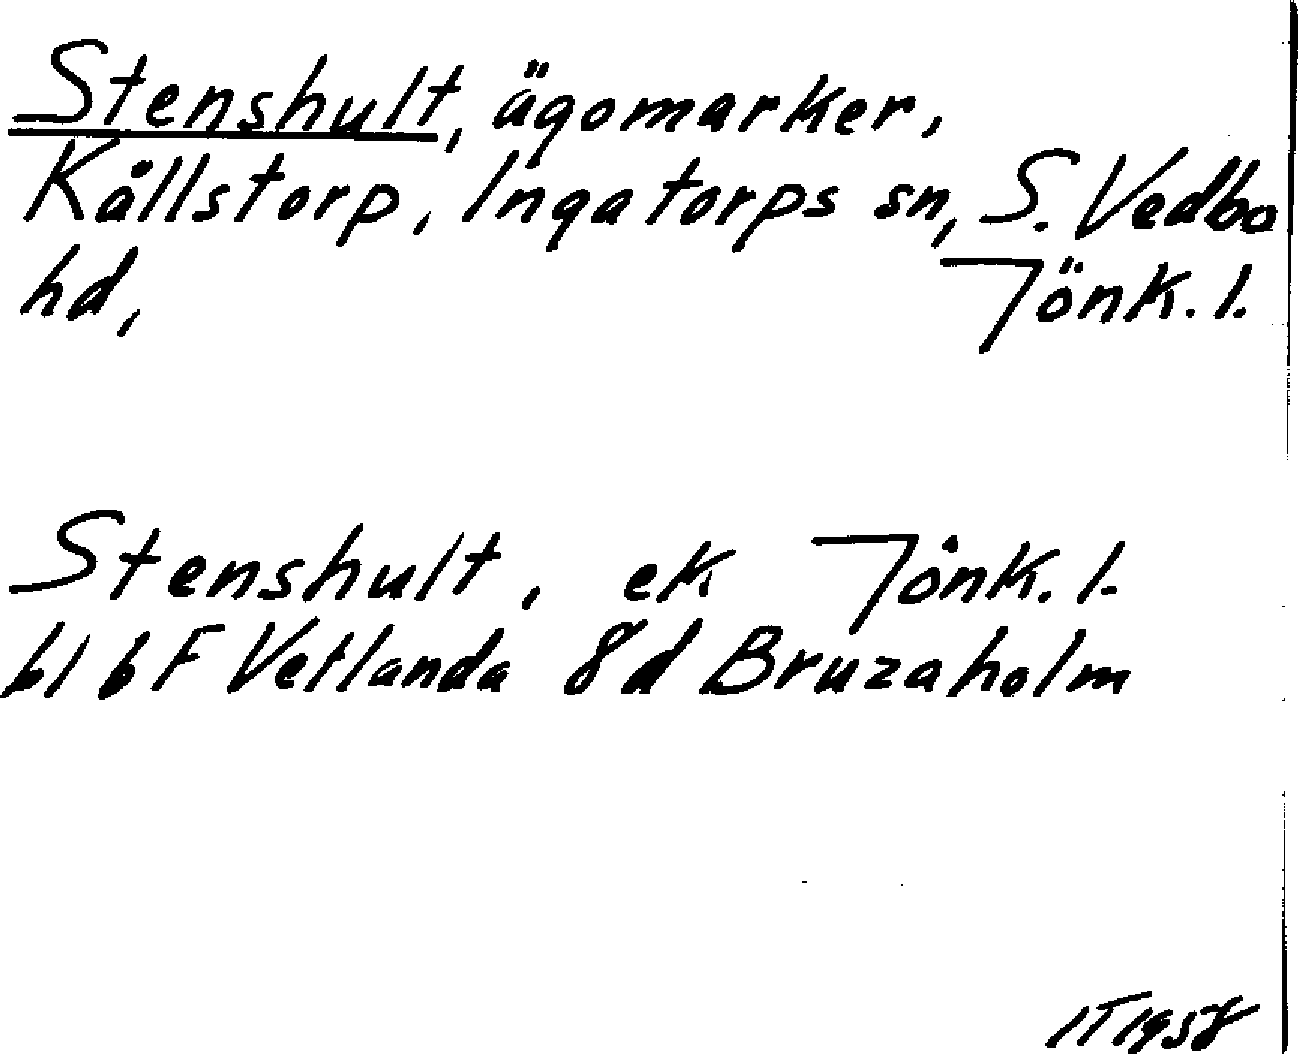 Stenshult, ägomarker,
Källstorp, Ingatorps sn, S. Vedbo
hd, Jönk. l.
Stenshult, ek Jönk. l.
bl b F Vetlanda 8d Bruzaholm
IT 1958